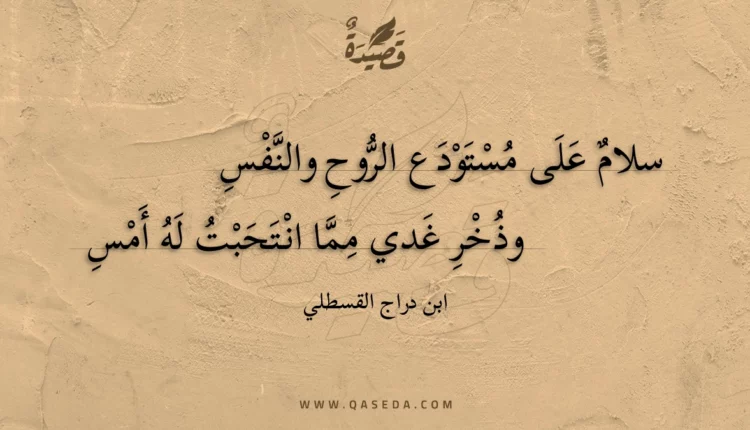 قَصِيْدَةٌ
سلامٌ عَلَى مُسْتَوْدَع الرُّوحِ والنَّفْسِ
وذُخْرِ غَدي مِمَّا انْتَحَبْتُ لَهُ أَمْسِ
ابن دراج القسطلي
WWW.QASEDA.COM